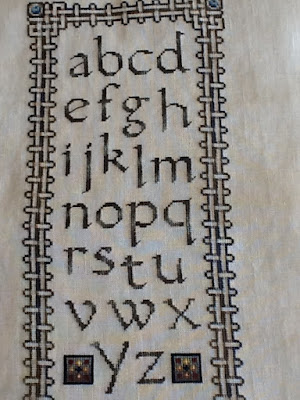 abcd
efgh
ijklm
nopq
rstu
vwx
yz